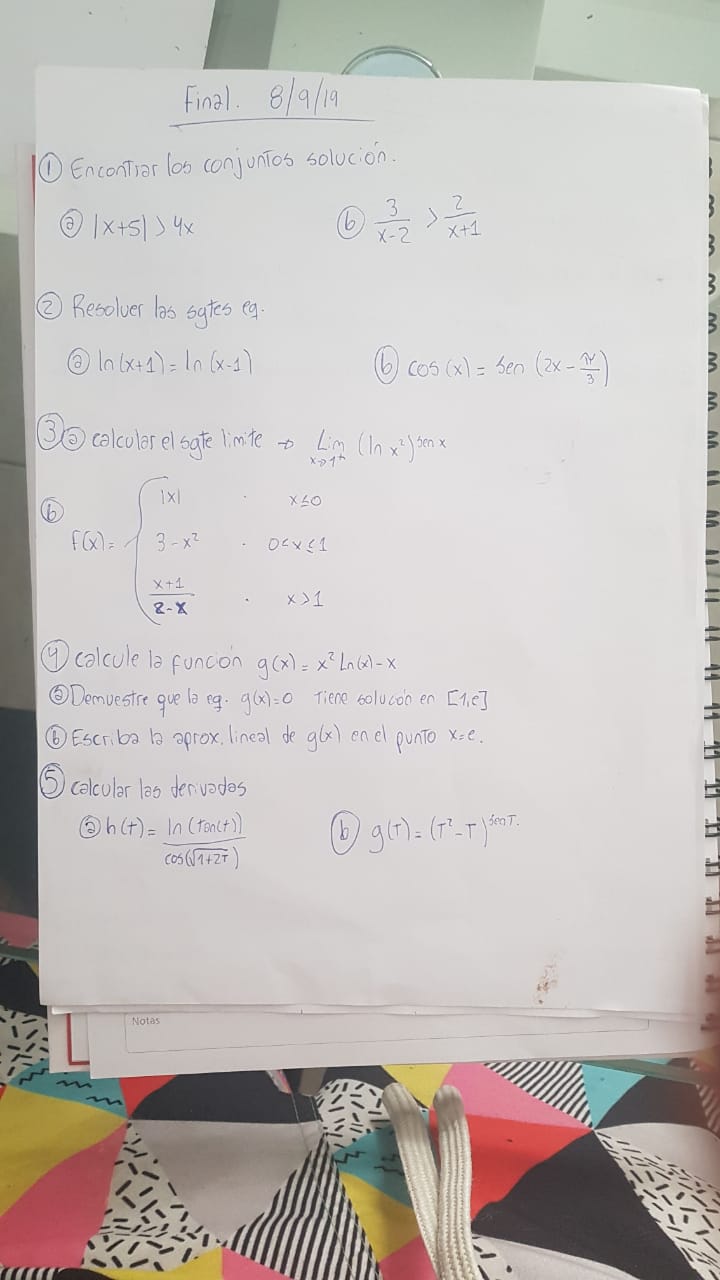 Final. 8/9/19
① Encontrar los conjuntos solución.
ⓐ |x+5| > 4x ⓑ 3/(x-2) > 2/(x+1)
② Resolver las sgtes eq.
ⓐ ln(x+1) = ln(x-1) ⓑ cos(x) = sen (2x - π/3)
③ ⓐ calcular el sgte limite → Lim x→1⁺ (ln x²)^sen x
ⓑ f(x) = { |x| . x≤0
3-x² . 0<x≤1
(x+1)/(2-x) . x>1
④ calcule la función g(x) = x² Ln(x) - x
ⓐ Demuestre que la eq. g(x)=0 Tiene solución en [1,e]
ⓑ Escriba la aprox. lineal de g(x) en el punto x=e.
⑤ calcular las derivadas
ⓐ h(t) = ln(tan(t))/cos(√(1+2T)) ⓑ g(T) = (T²-T)^senT.
Notas